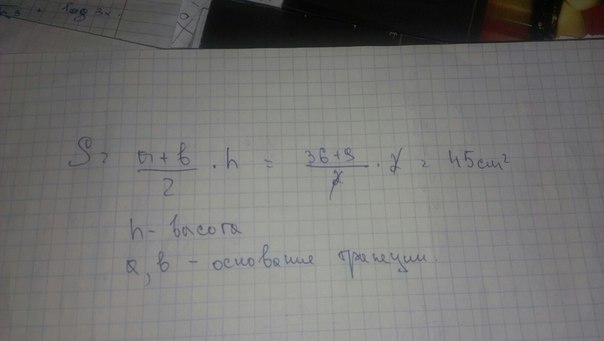 log 3x
S = a+b/2 · h = 36+9/2 · 2 = 45 см²
h - высота
a, b - основание трапеции.